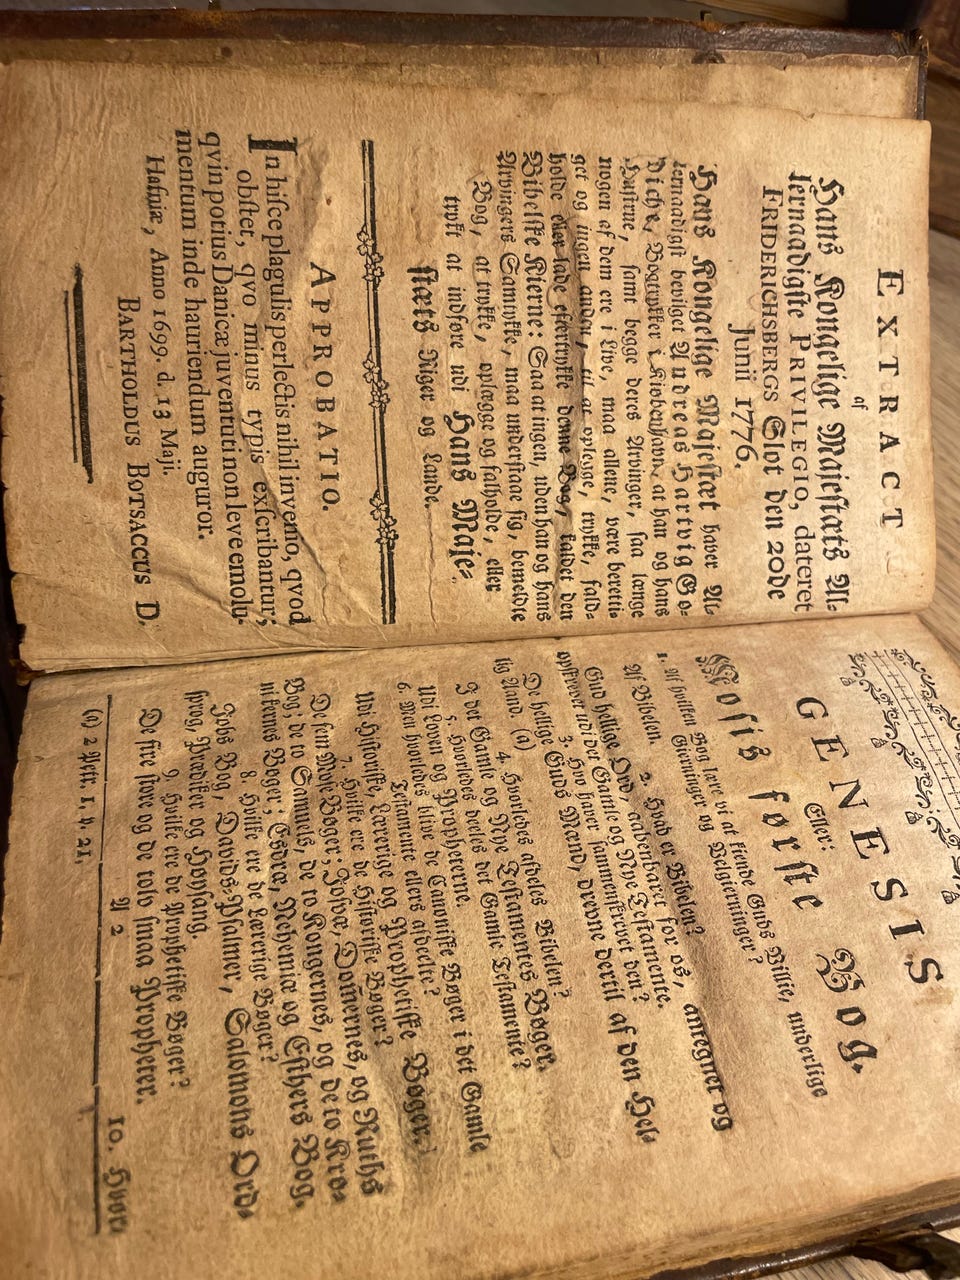 EXTRACT
af
Hans Kongelige Majestæts Al-
lernaadigste PRIVILEGIO, dateret
FRIDERICHSBERGS Slot den 20de
Junii 1776.
Hans Kongelige Majestæt haver Al-
lernaadigst bevilget Andreas Hartvig Go-
diche, Bogtrykker i Kiøbenhavn, at han og hans
Hustrue, samt begge deres Arvinger, saa længe
nogen af dem ere i Live, maa allene, være beretti-
get og ingen anden, til at oplegge, trykke, fald-
holde eller lade eftertrykke denne Bog, kaldet den
Bibelske Kierne: Saa at ingen, uden han og hans
Arvingers Samtykke, maa understaae sig, bemeldte
Bog, at trykke, oplægge og falholde, eller
trykt at indføre udi Hans Maje-
stæts Riger og Lande.
APPROBATIO.
In hisce plagulis perlectis nihil invenio, qvod
obstet, qvo minus typis exscribantur;
qvin potius Danicæ juventuti non leve emolu-
mentum inde hauriendum auguror.
Hafniæ, Anno 1699. d. 13 Maji.
BARTHOLDUS BOTSACCUS D.
GENESIS
Eller:
Mosis første Bog.
1. Af hvilken Bog lære vi at kiende Guds Villie, underlige
Gierninger og Velgierninger?
Af Bibelen.
2. Hvad er Bibelen?
Gud hellige Ord, aabenbaret for os, antegnet og
opskrevet udi det Gamle og Nye Testamente.
3. Hvo haver sammenskrevet den?
De hellige Guds Mænd, drevne dertil af den Hel-
lig Aand. (a)
4. Hvorledes afdeles Bibelen?
I det Gamle og Nye Testamentes Bøger.
5. Hvorledes deeles det Gamle Testamente?
Udi Loven og Propheterne.
6. Men hvorledes bleve de Canoniske Bøger i det Gamle
Testamente ellers afdeelte?
Udi Historiske, Lærerige og Prophetiske Bøger.
7. Hvilke ere de Historiske Bøger?
De fem Mose Bøger; Josvæ, Dom̃ernes, og Ruths
Bog; de to Samuels, de to Kongernes, og de to Krø-
nikernes Bøger; Esdræ, Nehemiæ og Esthers Bog.
8. Hvilke ere de Lærerige Bøger?
Jobs Bog, Davids-Psalmer, Salomons Ord-
sprog, Prædiker og Høysang.
9. Hvilke ere de Prophetiske Bøger?
De fire store og de tolv smaa Propheter.
A 2
10. Hvor-
(a) 2 Petr. 1, v. 21,